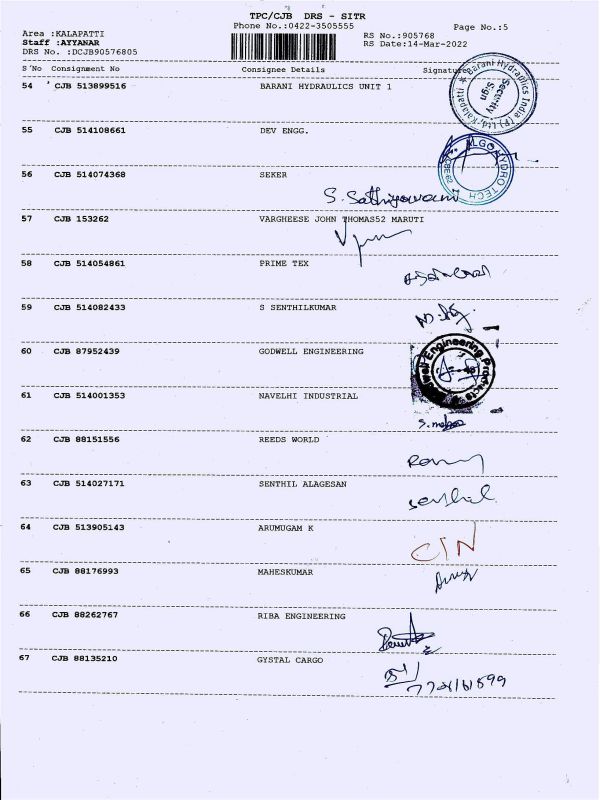 TPC/CJB DRS - SITR
Phone No.:0422-3505555 Page No.:5
Area :KALAPATTI RS No.:905768
Staff :AYYANAR RS Date:14-Mar-2022
DRS No. :DCJB90576805
S'No Consignment No Consignee Details Signature
54 CJB 513899516 BARANI HYDRAULICS UNIT 1
Barani Hydraulics India (P) Ltd, Kalapatti
Security Sign
55 CJB 514108661 DEV ENGG.
HYDRO TECH
56 CJB 514074368 SEKER
57 CJB 153262 VARGHEESE JOHN THOMAS52 MARUTI
58 CJB 514054861 PRIME TEX
59 CJB 514082433 S SENTHILKUMAR
60 CJB 87952439 GODWELL ENGINEERING
Engineering Products
61 CJB 514001353 NAVELHI INDUSTRIAL
62 CJB 88151556 REEDS WORLD
63 CJB 514027171 SENTHIL ALAGESAN
Senthil
64 CJB 513905143 ARUMUGAM K
65 CJB 88176993 MAHESKUMAR
66 CJB 88262767 RIBA ENGINEERING
67 CJB 88135210 GYSTAL CARGO